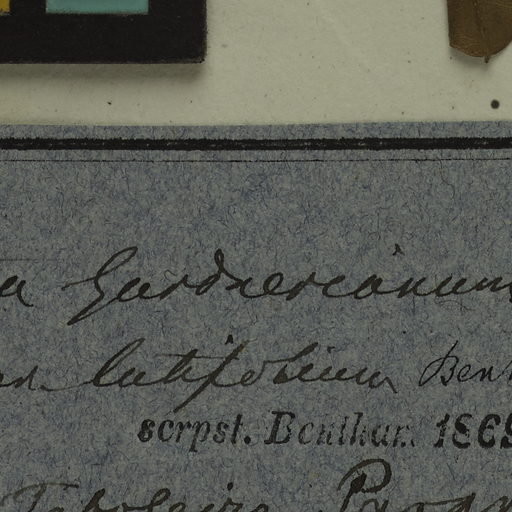 a Gardnerianum
var. latifolium Benth
scrpst. Benthan. 1869
Taboleiro